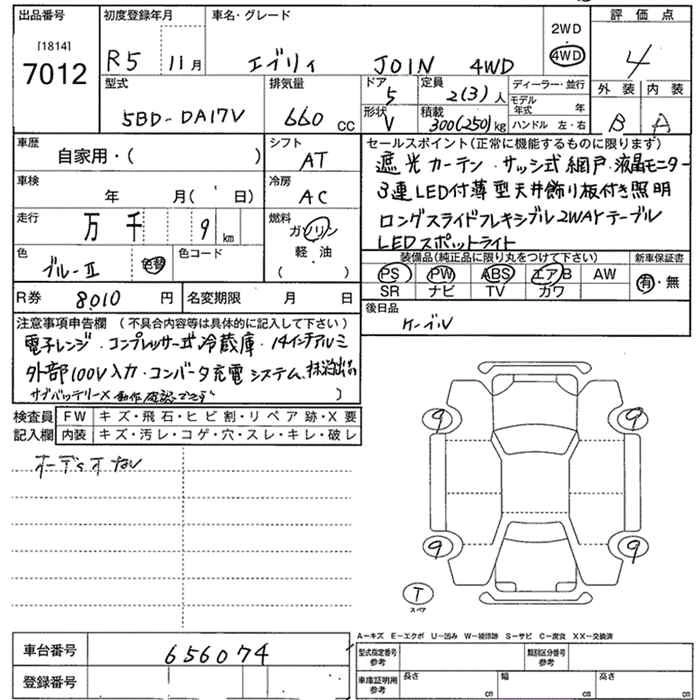 出品番号
[1814]
7012
初度登録年月
R5 11月
車名・グレード
エブリィ JOIN 4WD
2WD
4WD
評価点
4
外装 内装
B A
型式
5BD-DA17V
排気量
660 cc
ドア
5
形状
V
定員
2(3)人
積載
300(250)kg
ディーラー・並行
モデル年式 年
ハンドル 左・右
車歴
自家用・( )
シフト
AT
車検
年 月( 日)
冷房
AC
走行
万 千 9 km
燃料
ガソリン
軽油
( )
色
ブルーⅡ
色替
色コード
セールスポイント(正常に機能するものに限ります)
遮光カーテン・サッシ式網戸・液晶モニター
3連LED付薄型天井飾り板付き照明
ロングスライドフレキシブル2WAYテーブル
LEDスポットライト
装備品(純正品に限り丸をつけて下さい)
新車保証書
PS PW ABS エアB AW
SR ナビ TV カワ
有・無
R券 8010 円
名変期限 月 日
後日品
ケーブル
注意事項申告欄 (不具合内容等は具体的に記入して下さい)
電子レンジ・コンプレッサー式冷蔵庫・14インチアルミ
外部100V入力・コンバータ充電システム
サブバッテリー× 動作確認できず )
検査員記入欄
FW キズ・飛石・ヒビ割・リペア跡・X要
内装 キズ・汚レ・コゲ・穴・スレ・キレ・破レ
オーディオナシ
9 9
9 9
T
スペア
車台番号 656074
登録番号
A-キズ E-エクボ U-凹み W-補修跡 S-サビ C-腐食 XX-交換済
型式指定番号 参考
類別区分番号 参考
車庫証明用 参考
長さ cm 幅 cm 高さ cm